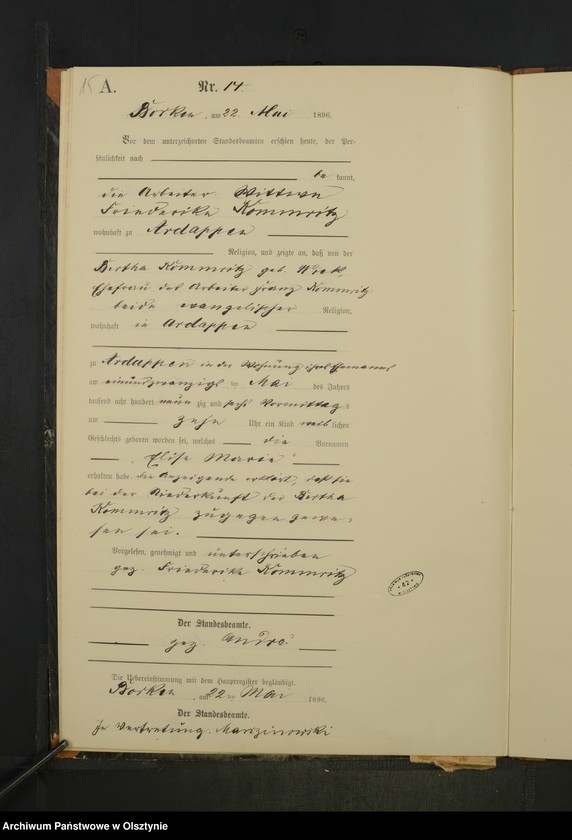 15 A. Nr. 14.
Borken, am 22 Mai 1896.
Vor dem unterzeichneten Standesbeamten erschien heute, der Per-
sönlichkeit nach
be kannt,
die Arbeiter Wittwe
Friederike Kommritz
wohnhaft zu Ardappen
Religion, und zeigte an, daß von der
Bertha Kommritz geb.
Ehefrau des Arbeiter Franz Kommritz
beide evangelischer Religion,
wohnhaft in Ardappen
zu Ardappen in der Wohnung ihres Ehemannes
am einundzwanzigsten Mai des Jahres
tausend acht hundert neun zig und sechs Vormittags
um zehn Uhr ein Kind weib lichen
Geschlechts geboren worden sei, welches die Vornamen
„Elise Marie“
erhalten habe. Die Anzeigende erklärt, daß sie
bei der Niederkunft der Bertha
Kommritz zugegen gewe-
sen sei.
Vorgelesen, genehmigt und unterschrieben
gez. Friederike Kommritz
Der Standesbeamte.
gez. André.
Die Uebereinstimmung mit dem Hauptregister beglaubigt.
Borken, am 22 ten Mai 1896.
Der Standesbeamte.
In Vertretung. Marszinowski
Archiwum Państwowe w Olsztynie